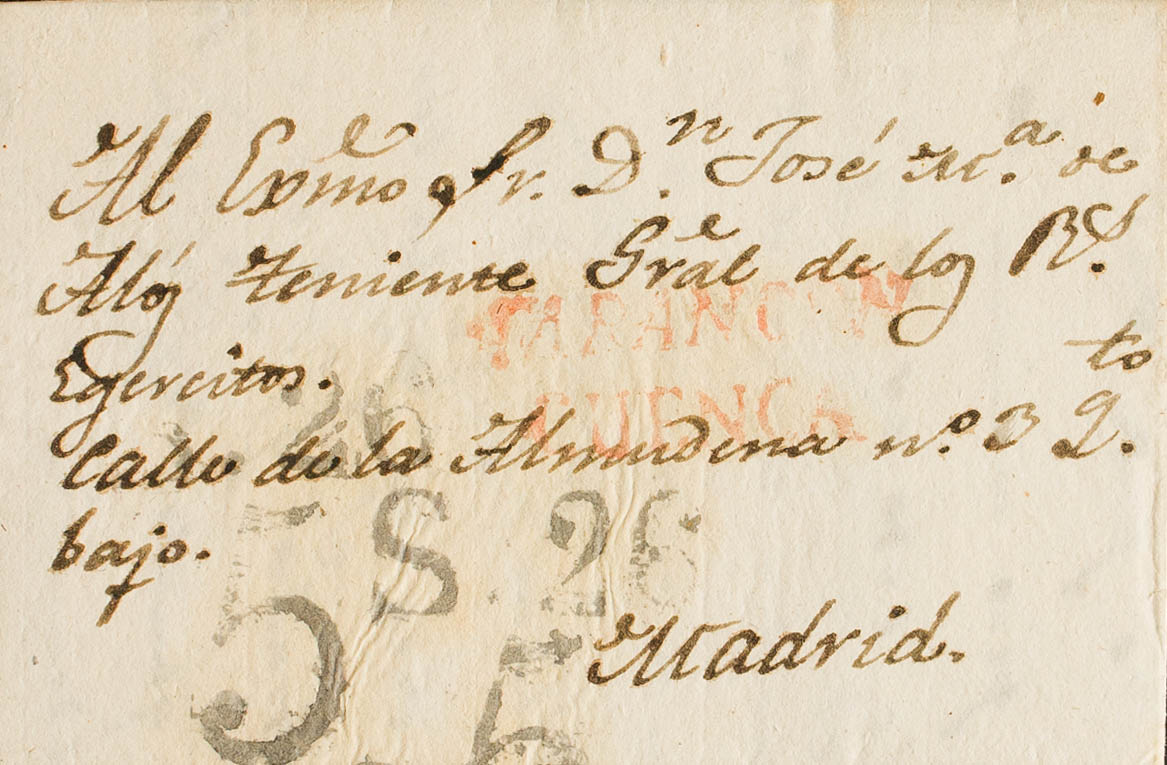 Al Exmo Sr. Dn. José Ma. de
Alós teniente Gral de los Rs.
Egercitos.
Calle de la Almudena nº. 3 Qto.
bajo.
Madrid.
TARANCON
CUENCA
26
5 S. 26
5